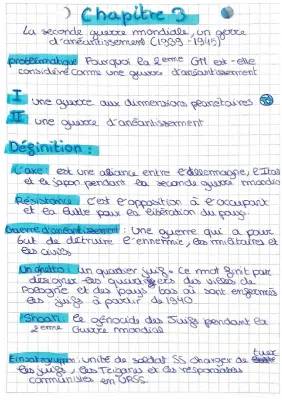 Chapitre 3
La seconde guerre mondiale, un gerre
d'anéantissement (1939-1945)
problématique Pourquoi la 2eme GM est-elle
considéré comme une guerre d'anéantissement
I une guerre aux dimensions planétaires
II une guerre d'anéantissement
Définition :
L'axe : est une aliance entre l'allemagne, l'Ital
et le japon pendant la seconde guerre mondia
Résistance C'est l'opposition à l'occupant
et la lutte pour la libération du pays.
Guerre d'anéantissement : Une guerre qui a pour
but de détruire l'ennemie, les militaires et
les civils
Un ghetto : un quartier juif. Ce mot finit par
désigner les quartiers des villes de
Pologne et des pays bas où sont enfermés
les juifs à partir de 1940
Shoah : le génocide des Juifs pendant la
2eme Guerre mondiale
Einsatzgruppe : unité de soldat SS charger de tuer
les juifs, les Tziganes et des responsables
communistes en URSS.